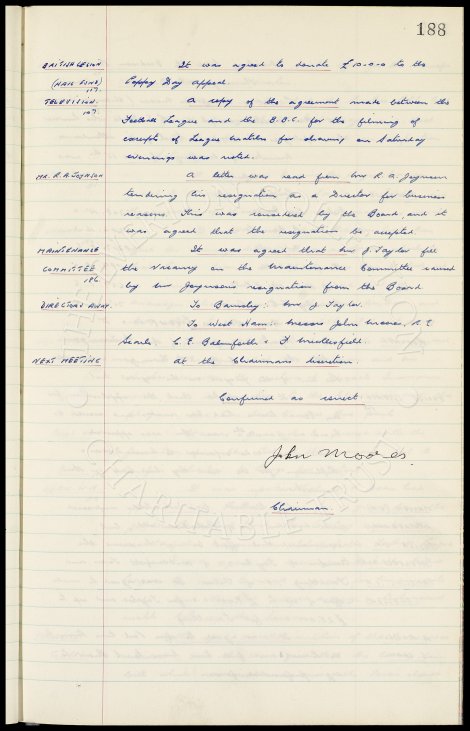 188
BRITISH LEGION It was agreed to donate £ to the
(HAIG FUND) Poppy Day appeal.
117.
TELEVISION. A copy of the agreement made between the
107. Football League and the B.B.C. for the filming of
excerpts of League matches for showing on Saturday
evenings was noted.
MR. R.A. JOYNSON A letter was read from Mr R. A. Joynson
tendering his resignation as a Director for business
reasons. This was considered by the Board and it
was agreed that the resignation be accepted.
MAINTENANCE It was agreed that Mr J. Taylor fill
COMMITTEE the vacancy on the Maintenance Committee caused
186. by Mr Joynson's resignation from the Board.
DIRECTORS AWAY. To Barnsley:- Mr J Taylor.
To West Ham:- Messrs John Moores, R E
Searle C. E. Balmforth & F Micklesfield.
NEXT MEETING At the Chairmans discretion.
Confirmed as correct
John Moores.
Chairman.
CHARITABLE TRUST